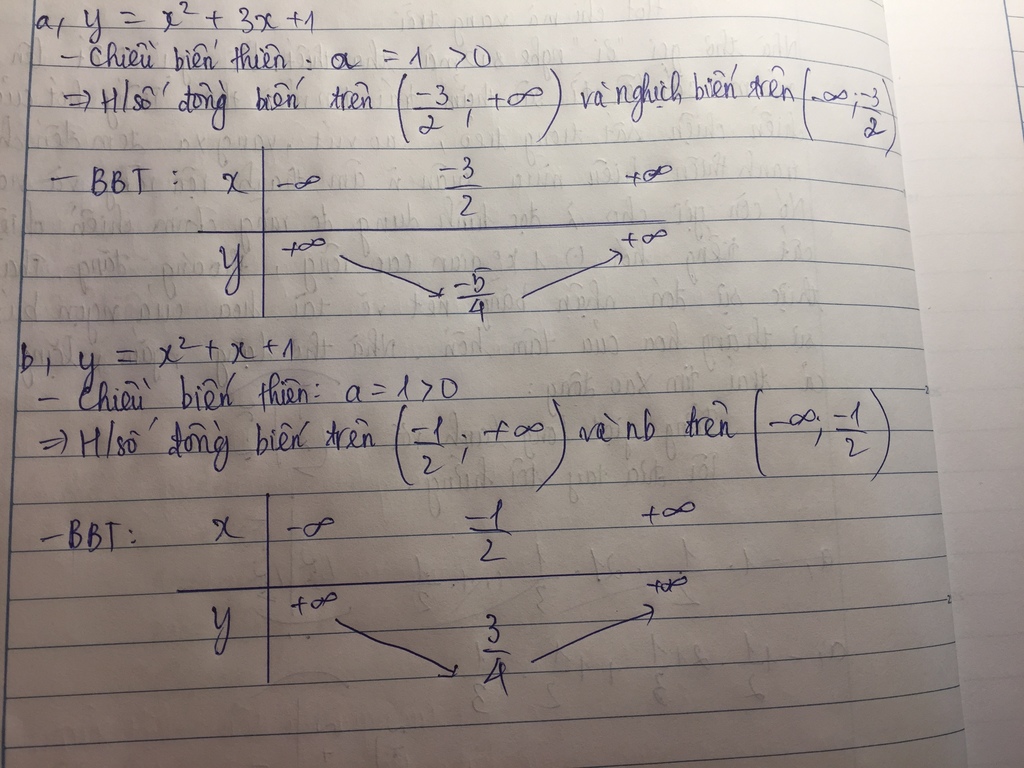 a, y = x² + 3x + 1
- Chiều biến thiên: a = 1 > 0
=> H/số đồng biến trên (-3/2; +∞) và nghịch biến trên (-∞; -3/2)
- BBT: x -∞ -3/2 +∞
y +∞ -5/4 +∞
b, y = x² + x + 1
- Chiều biến thiên: a = 1 > 0
=> H/số đồng biến trên (-1/2; +∞) và nb trên (-∞; -1/2)
- BBT: x -∞ -1/2 +∞
y +∞ 3/4 +∞